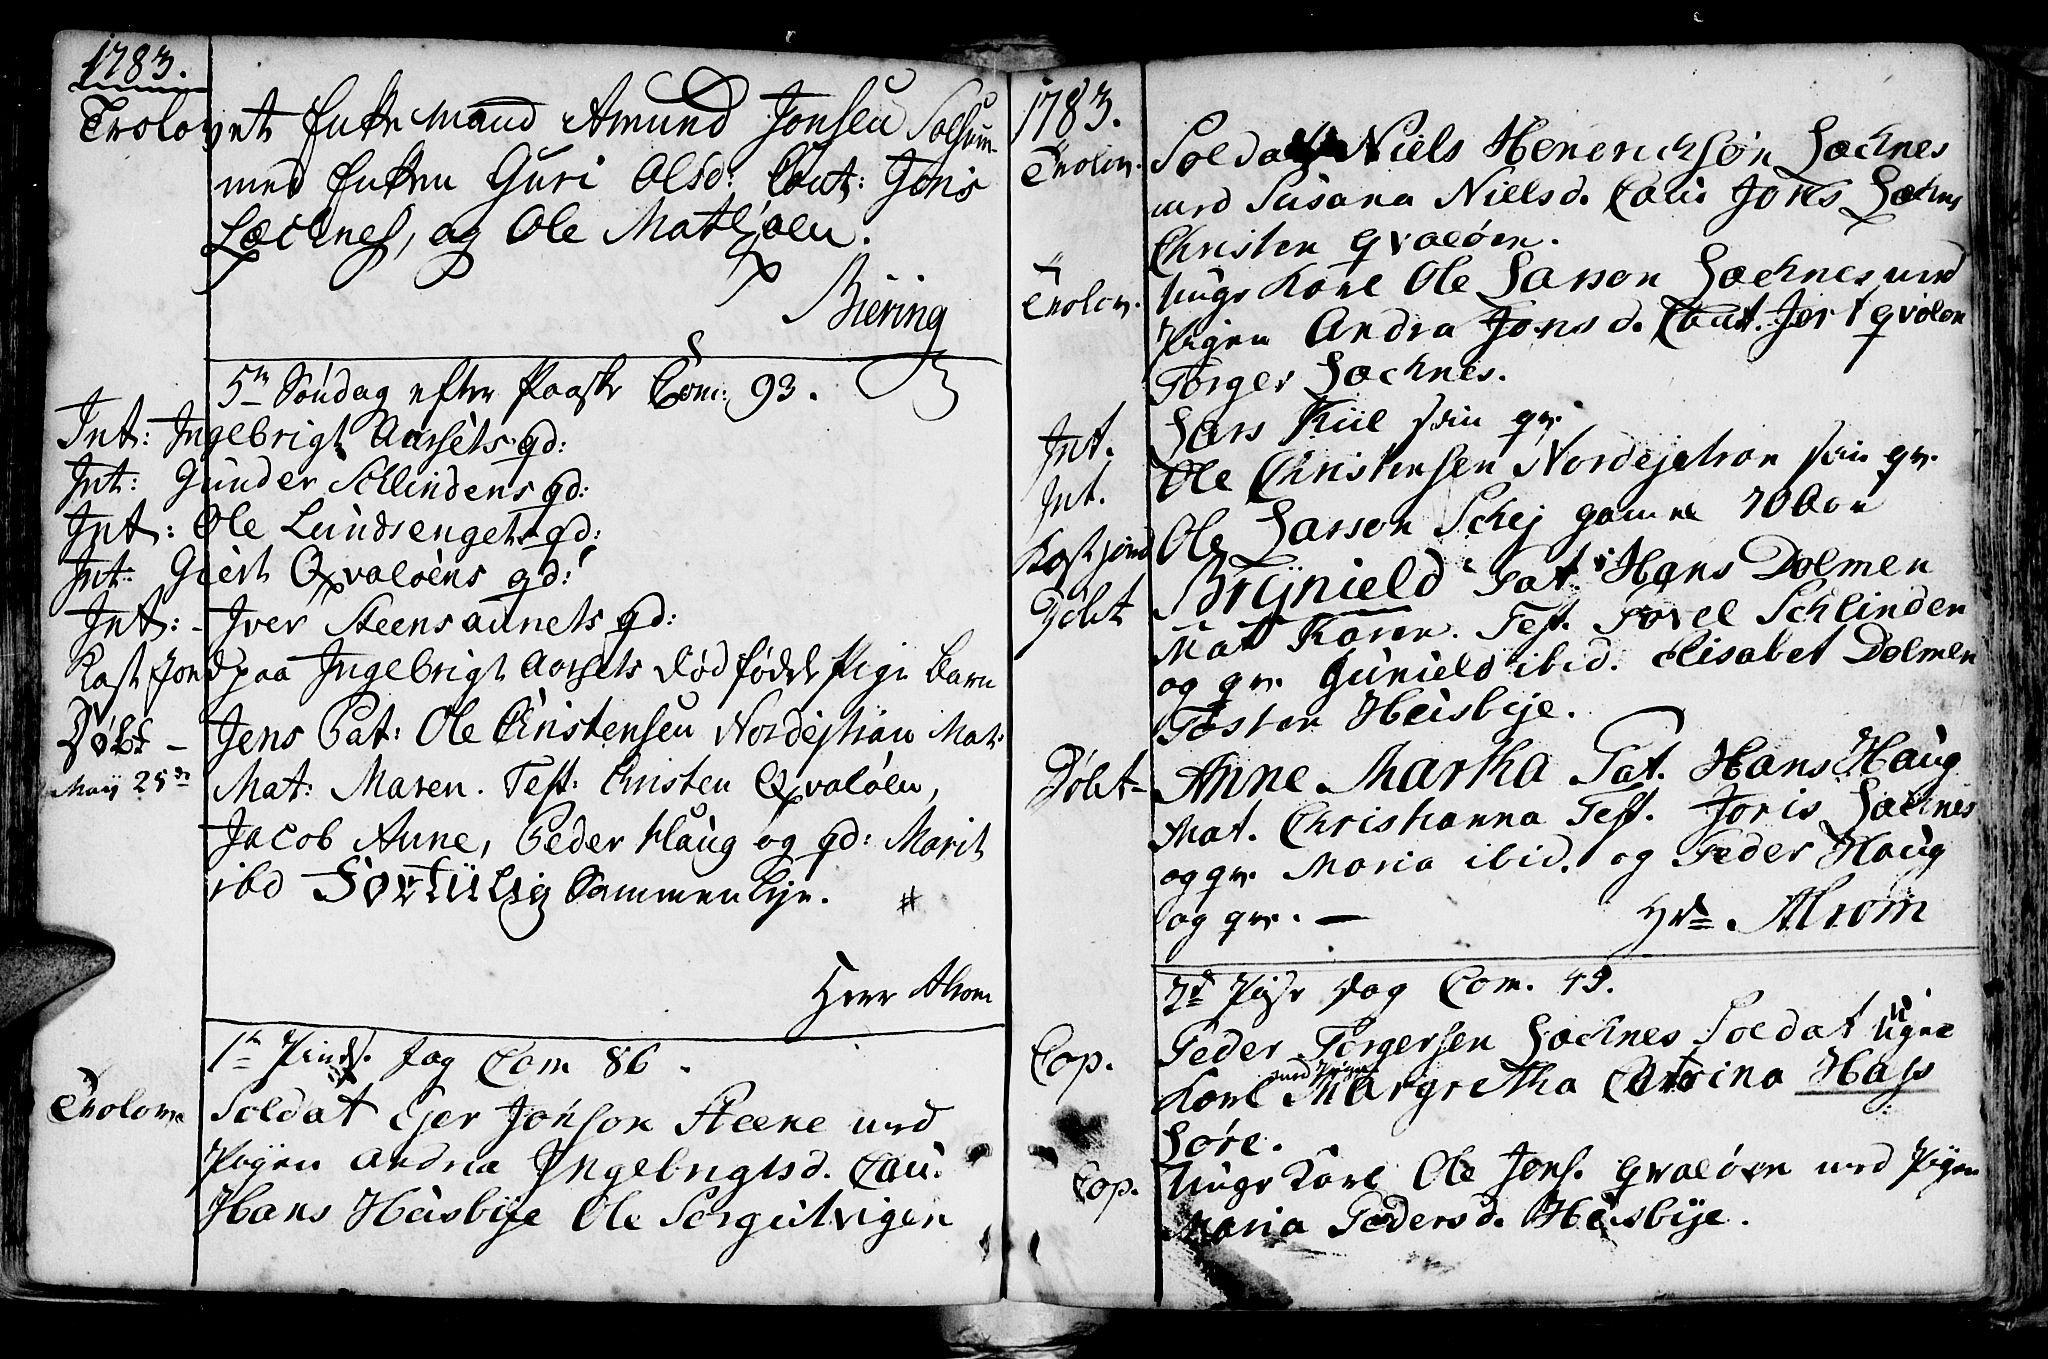 1783.
Trolovet Enke Mand Amund Jonsen Solsum
med Enken Guri Olsd: Caut: Joris
Læchnes, og Ole Matløen.
Biering
5te Søndag efter Paaske Com: 93.
Int: Ingebrigt Aarsets qd:
Int: Gunder Schlindens qd:
Int: Ole Lundsengets qd:
Int: Giert Qvaløens qd:
Int: - Iver Steensaunets qd:
Kast Jord paa Ingebrigt Aarsets død fødde Pige Barn
Døbt - Jens Pat: Ole Christensen Nordejhan Mat:
Maij 25de Mat: Maren. Test: Christen Qvaløen,
Jacob Aune, Peder Haug og qd: Marit
ibd Sammenbye. #
Herr Alrom
1te Pinds. Dag Com 86.
Trolove Soldat Ejer Jonson Steene med
Pigen Andrea Ingebrigtsd. Cau.
Hans Heusbije Ole Sorgutvigen
1783.
Trolov. Soldat Niels Henerichsøn Læchnes
med Susana Nielsd. Cau: Joris Læchnes
Christen qvaløen.
Trolov. Unge Karl Ole Larson Læchnes med
Pigen Andra Jonsd. Caut. Jert qvoløn
Torger Læchnes.
Int. Lars Kiil sin qv.
Int. Ole Christensen Nordejetron sin qv.
Kast jord Ole Larson Schej gamel 70 Aar
Døbt Brynield Pat. Hans Dolmen
Mat Karen. Test. Povel Schlinden
og qv. Gunield ibid. Elisabet Dolmen
Toster Heusbije.
Døbt - Anne Martha Pat. Hans Haug
Mat. Christianna Test. Joris Lachnes
og qv. Maria ibid. og Peder Haug
og qv. — Hr. Alrom
2d Pijse dag Com. 49.
Cop. Peder Torgersen Lachnes Soldat unge
Karl med Pigen Margretha Catrina Hass
Søre.
Cop. Unge Karl Ole Jons. qvaløen med Pigen
Maria Pedersd. Heusbije.